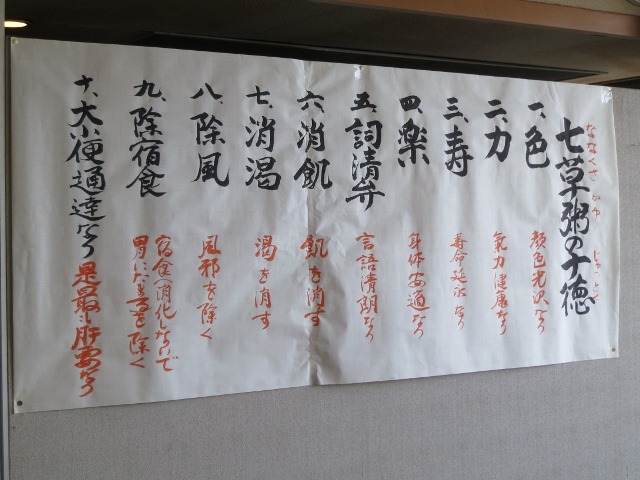 七草粥の十徳
ななくさ がゆ じっとく
一、色 顔色光沢なり
二、力 気力健康なり
三、寿 寿命延永なり
四、楽 身体安適なり
五、詞清弁 言語清朗なり
六、消飢 飢を消す
七、消渇 渇を消す
八、除風 風邪を除く
九、除宿食 宿食(消化しないで
胃に を除く
十、大小便通達なり 是最も肝要なり